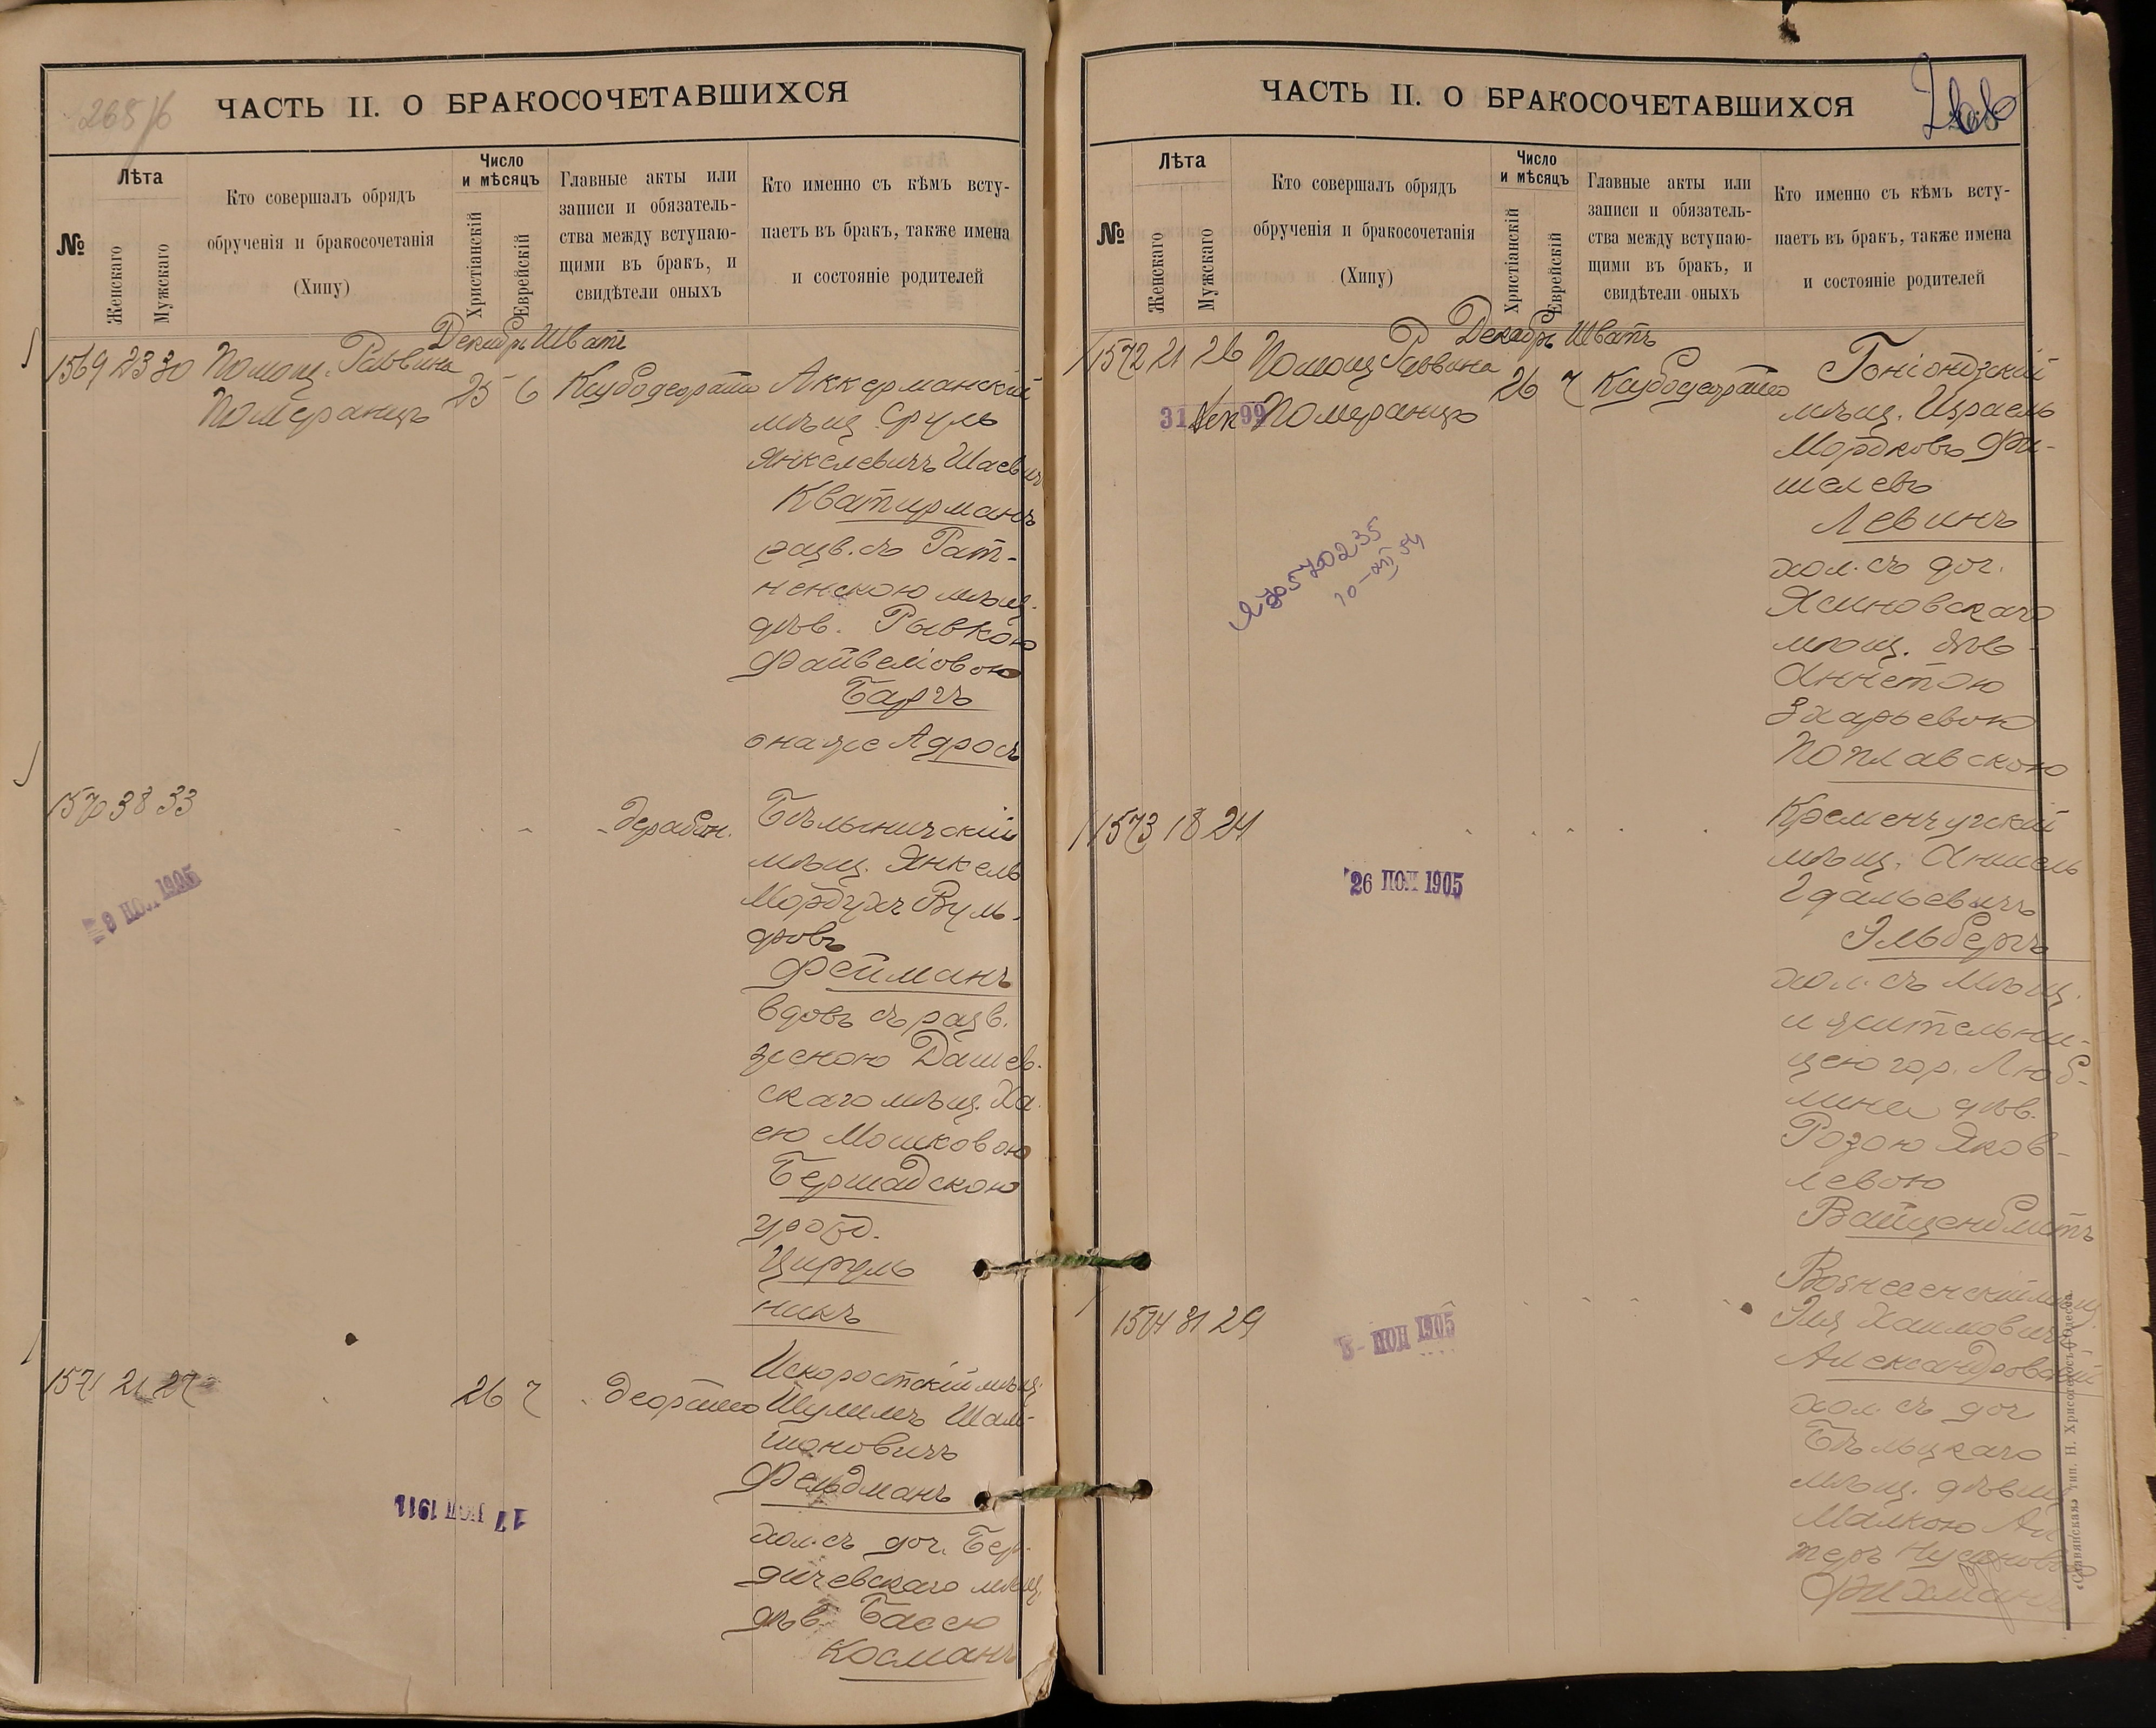 265/б
ЧАСТЬ II. О БРАКОСОЧЕТАВШИХСЯ
№
Лѣта
Женскаго
Мужскаго
Кто совершалъ обрядъ
обрученія и бракосочетанія
(Хипу)
Число
и мѣсяцъ
Христіанскій
Еврейскій
Главные акты или
записи и обязатель-
ства между вступаю-
щими въ бракъ, и
свидѣтели оныхъ
Кто именно съ кѣмъ всту-
паетъ въ бракъ, также имена
и состояніе родителей
Декабрь Шватъ
1569 23 30 Помощ. Раввина
Померанцъ
25 6
Аккерманскій
мѣщ. Сруль
Янкелевичъ Шаевичъ
Кватирманъ
разв. съ Рат-
ненскою мѣщ.
дѣв. Рывкою
Файвеліовою
Баргъ
она же Адросъ
1570 38 33
Бѣлыничскій
мѣщ. Янкель
Мордухъ Вуль-
фовъ
Фейманъ
вдовъ съ разв.
женою Дашев-
скаго мѣщ. Ха-
ею Мошковою
Бершадскою
урожд.
Цируль
никъ
8 ПОЛ 1905
1571 21 27
26 7
Искоростскій мѣщ.
Шулимъ Шам-
шоновичъ
Фельдманъ
хол. съ доч. Бер-
дичевскаго мѣщ.
дѣв. Басею
Косманъ
17 ПОЛ 1911
ЧАСТЬ II. О БРАКОСОЧЕТАВШИХСЯ
266
№
Лѣта
Женскаго
Мужскаго
Кто совершалъ обрядъ
обрученія и бракосочетанія
(Хипу)
Число
и мѣсяцъ
Христіанскій
Еврейскій
Главные акты или
записи и обязатель-
ства между вступаю-
щими въ бракъ, и
свидѣтели оныхъ
Кто именно съ кѣмъ всту-
паетъ въ бракъ, также имена
и состояніе родителей
Декабрь Шватъ
1572 21 26 Помощ Раввина
Померанцъ
31 Дек 99
26 7
Гоніондзскій
мѣщ. Израель
Мордковъ Фи-
шелевъ
Левинъ
хол. съ доч.
Ясиновскаго
мѣщ. дѣв.
Аннетою
Зхарьевою
Поплавскою
1573 18 24
26 ПОЛ 1905
Кременчугскій
мѣщ. Аншель
Гдальевичъ
Эльбергъ
хол. съ мѣщ.
и жительни-
цею гор. Люб-
лина дѣв.
Розою Яков-
левою
Вайценблитъ
1574 31 29
ПОЛ 1905
Вознесенскій мѣщ
Эля Хаимовичъ
Александровскій
хол. съ доч
Бѣльцкаго
мѣщ. дѣвиц
Малкою Ал
теръ Нусиновою
Фихманъ
«Славянская» тип. Н. Хрисогелосъ, Одесса